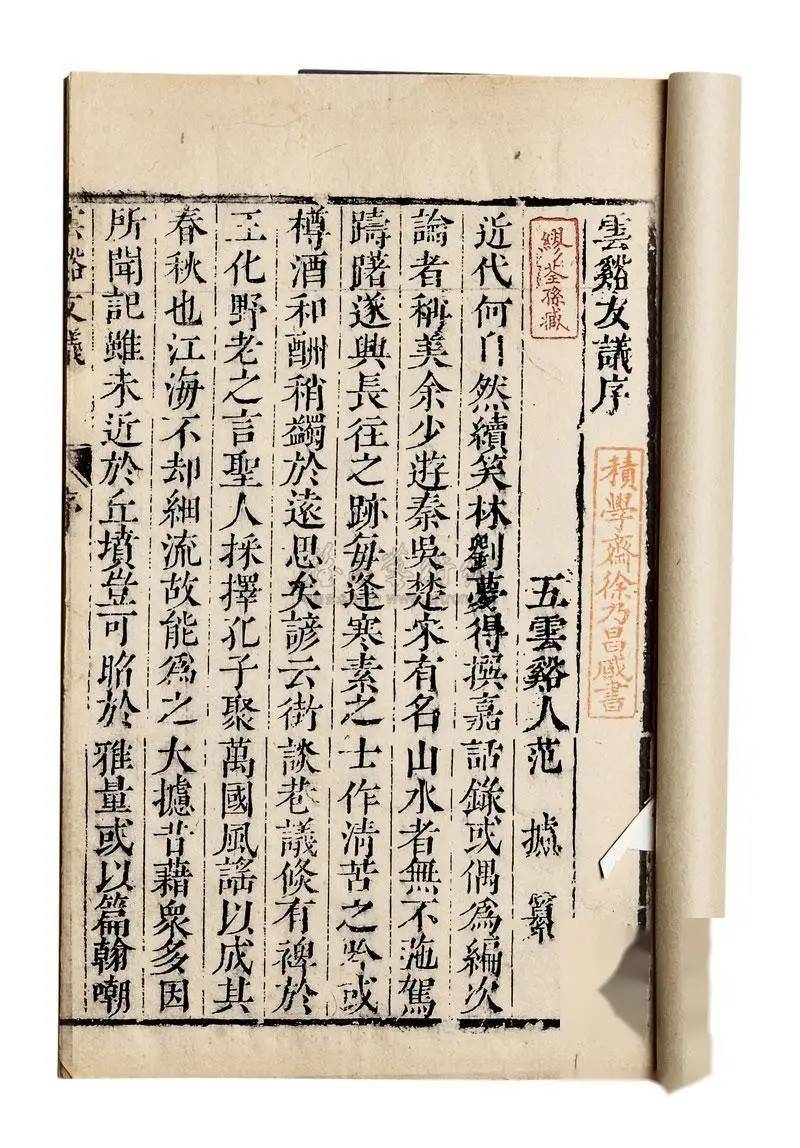 雲谿友議序
積學齋徐乃昌臧書
繆荃孫臧
五雲谿人范 攄 纂
近代何自然續笑林劉夢得撰嘉話錄或偶為編次
論者稱美余少遊秦吳楚宋有名山水者無不弛駕
躊躇遂興長往之跡每逢寒素之士作清苦之吟或
樽酒和酬稍蠲於遠思矣諺云街談巷議倐有裨於
王化野老之言聖人採擇孔子聚萬國風謠以成其
春秋也江海不却細流故能為之大攄昔藉眾多因
所聞記雖未近於丘墳豈可昭於雅量或以篇翰嘲
雲谿友議
序